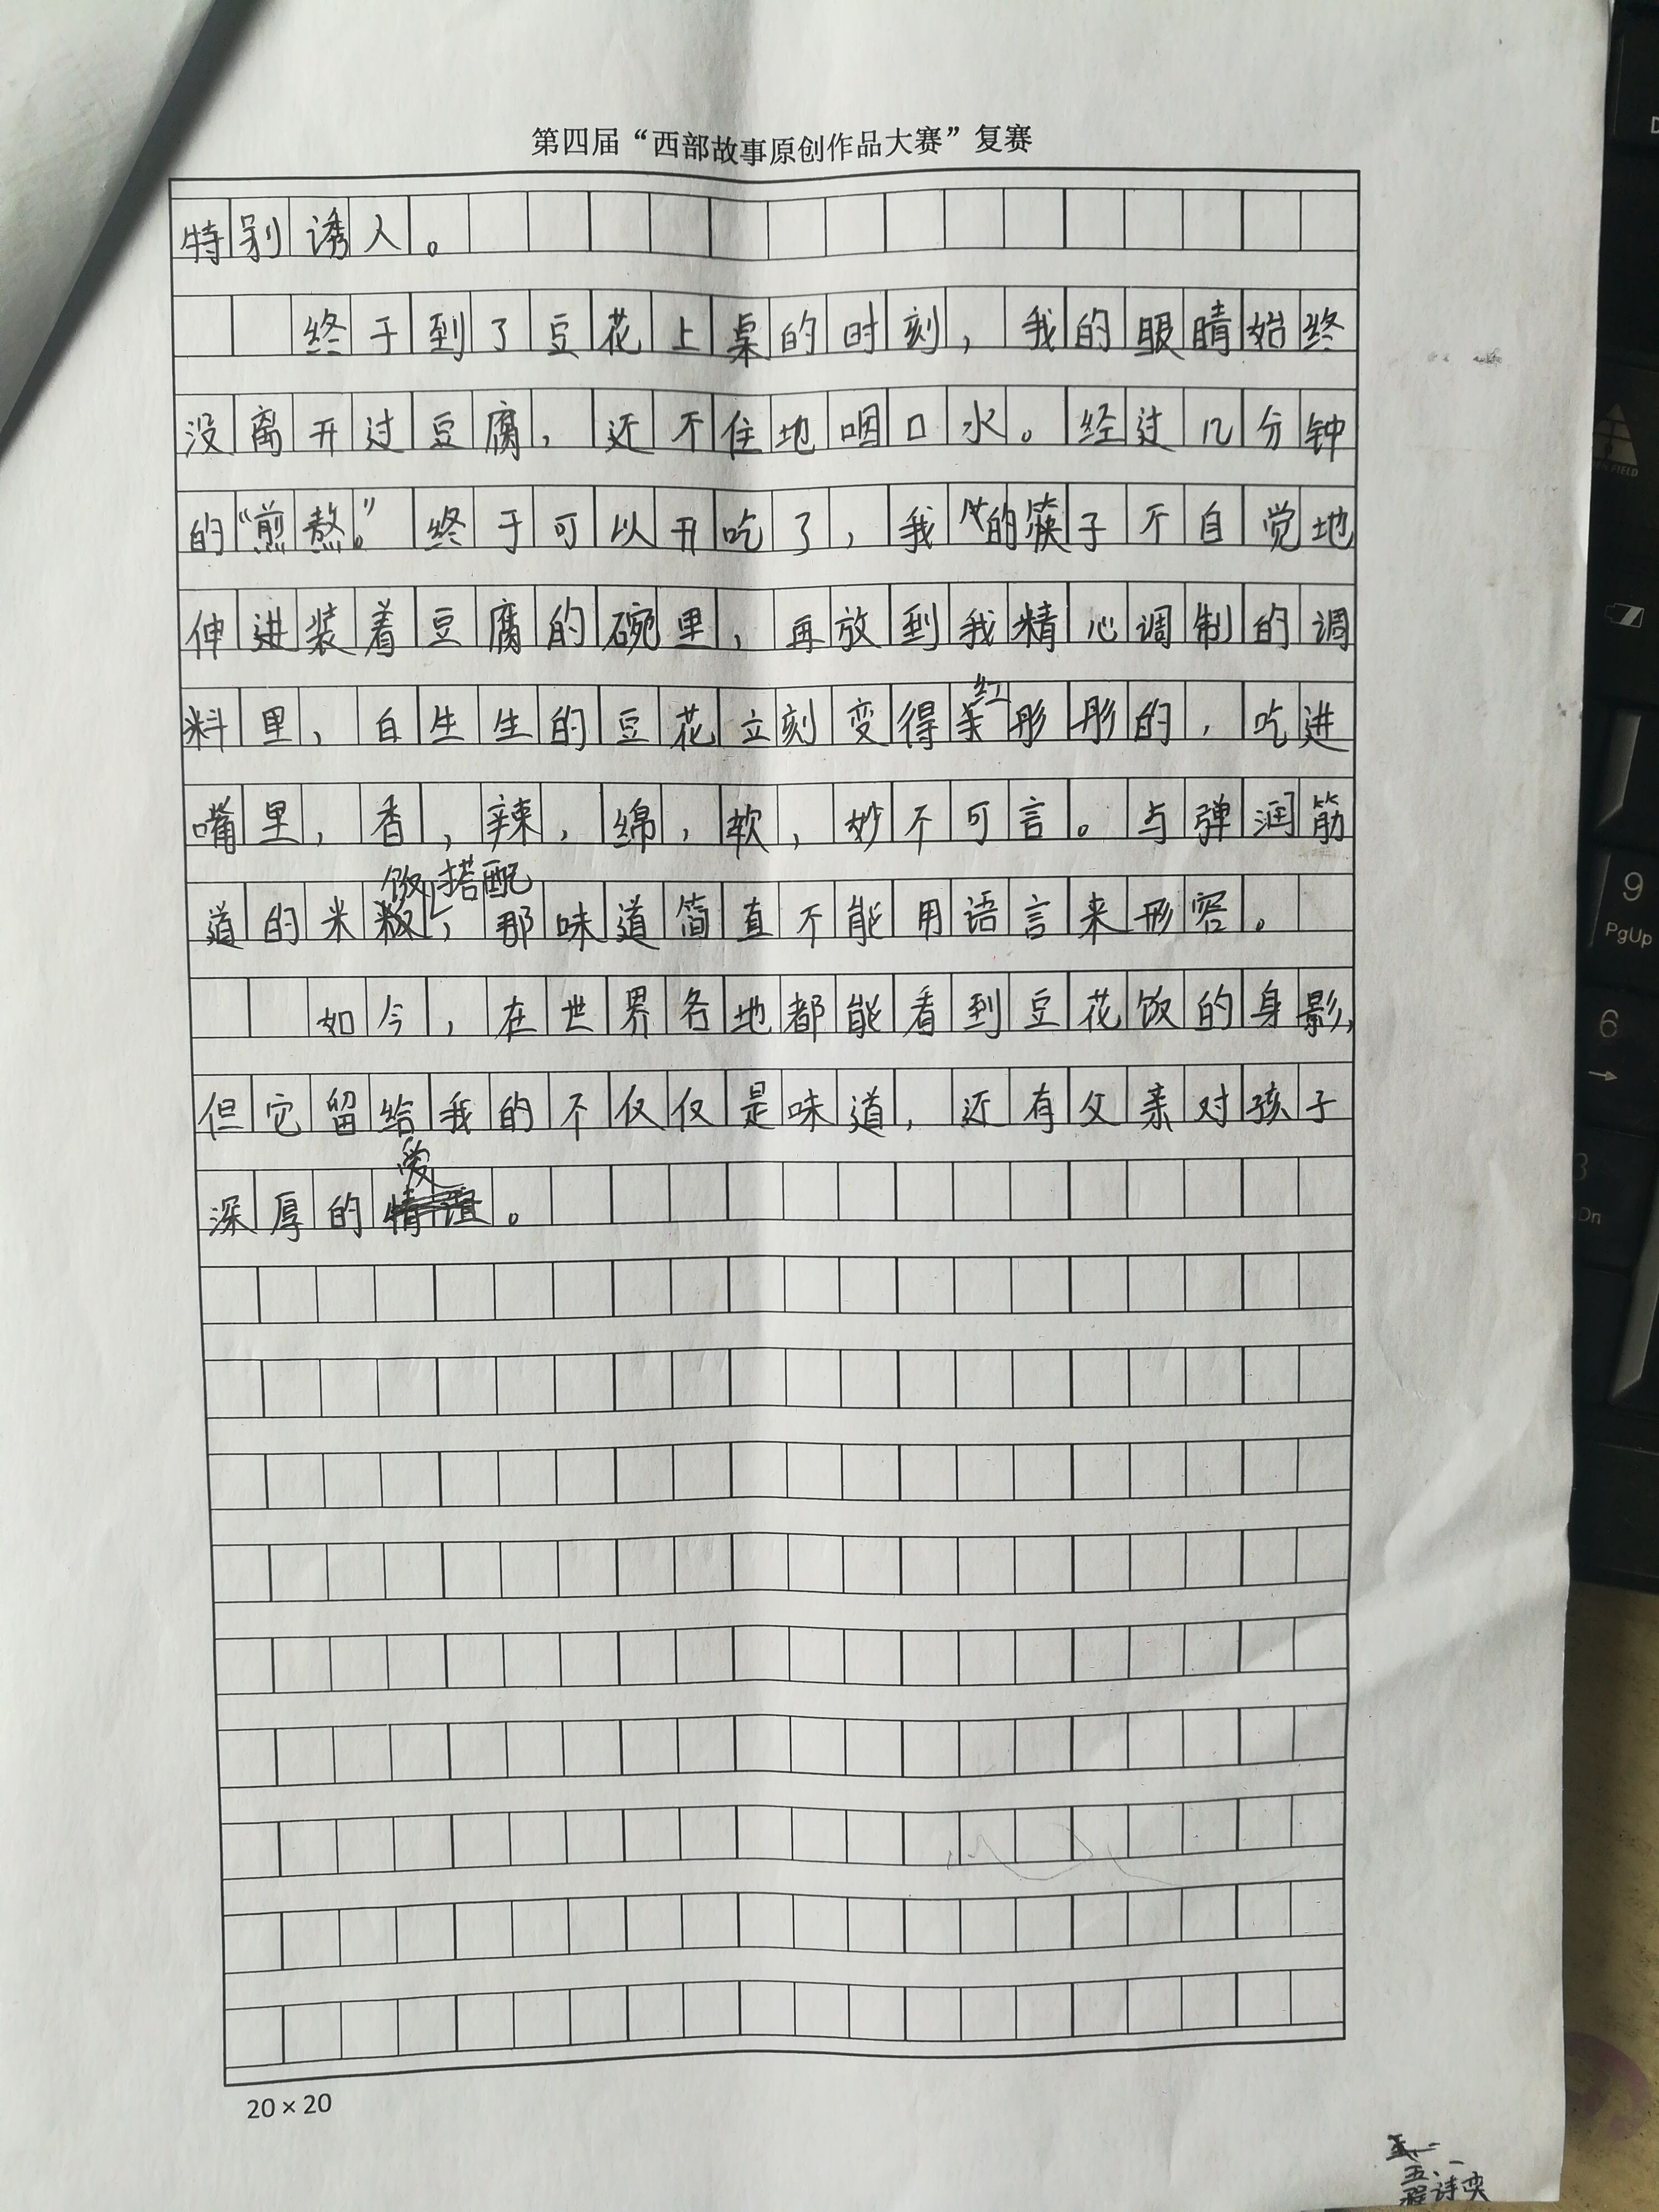 第四届“西部故事原创作品大赛”复赛
特别诱人。
终于到了豆花上桌的时刻，我的眼睛始终
没离开过豆腐，还不住地咽口水。经过几分钟
的“煎熬。”终于可以开吃了，我的筷子不自觉地
伸进装着豆腐的碗里，再放到我精心调制的调
料里，白生生的豆花立刻变得红彤彤的，吃进
嘴里，香，辣，绵，软，妙不可言。与弹润筋
道的米饭搭配，那味道简直不能用语言来形容。
如今，在世界各地都能看到豆花饭的身影，
但它留给我的不仅仅是味道，还有父亲对孩子
深厚的爱。
20×20
五.一
程诗奕
9
PgUp
6
→
3
Dn